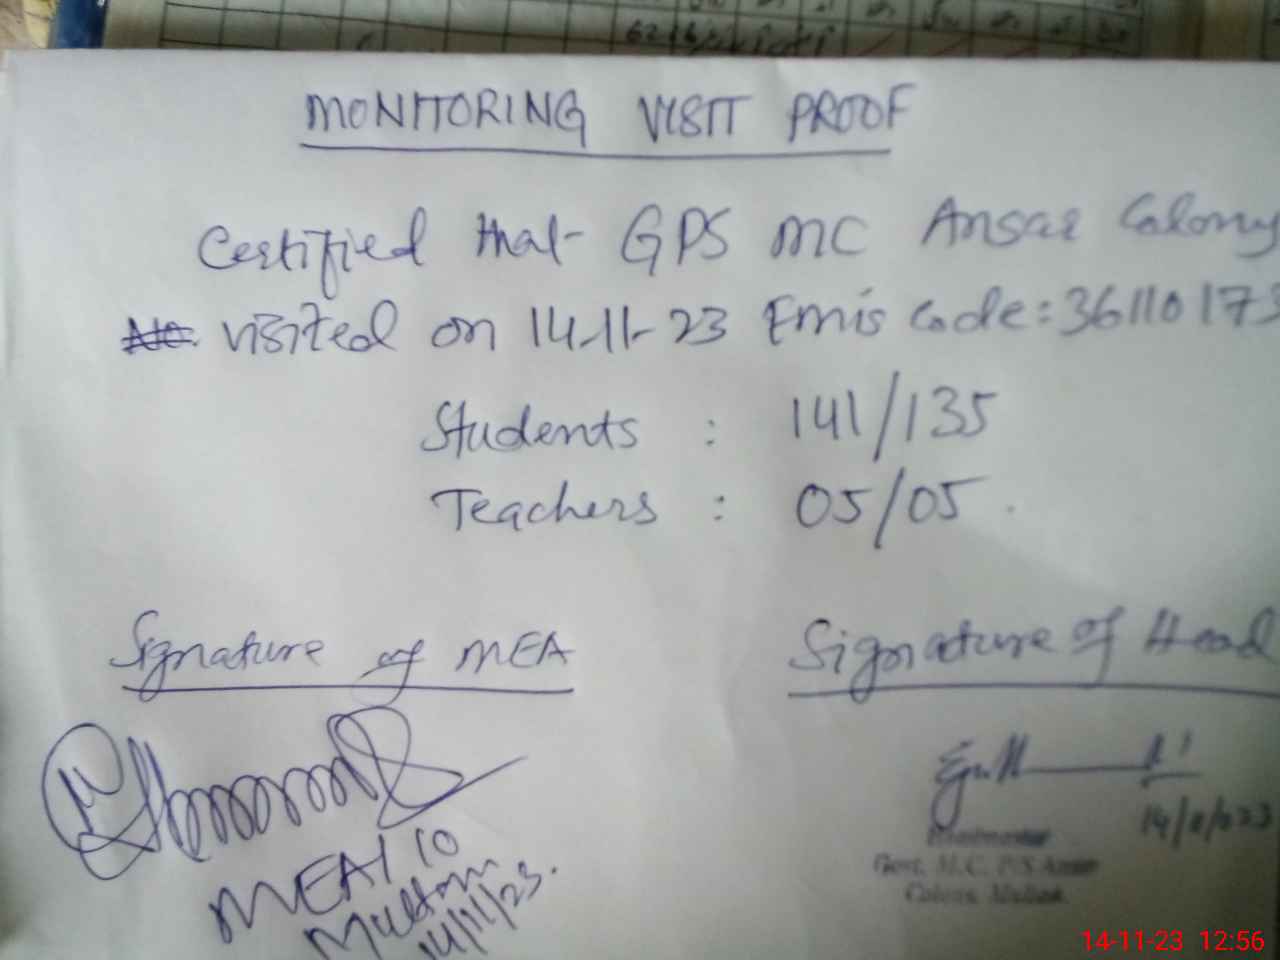 MONITORING VISIT PROOF
Certified that GPS MC Ansar Colony
visited on 14-11-23 Emis Code: 36110173
Students : 141/135
Teachers : 05/05.
Signature of MEA
Signature of Head
MEA 10
Multan
14/11/23.
Headmaster
Govt. M.C. P/S Ansar
Colony, Multan.
14-11-23 12:56